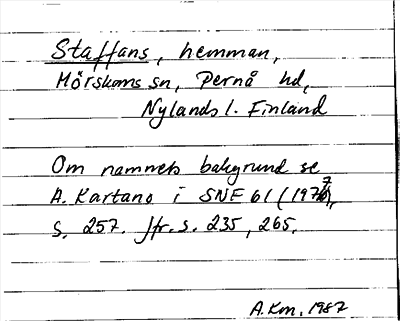 Staffans, hemman,
Mörskoms sn, Pernå hd,
Nylands l. Finland
Om namnets bakgrund se
A. Kartano i SNF 61 (1977),
s. 257. Jfr. s. 235, 265.
A.Km. 1987